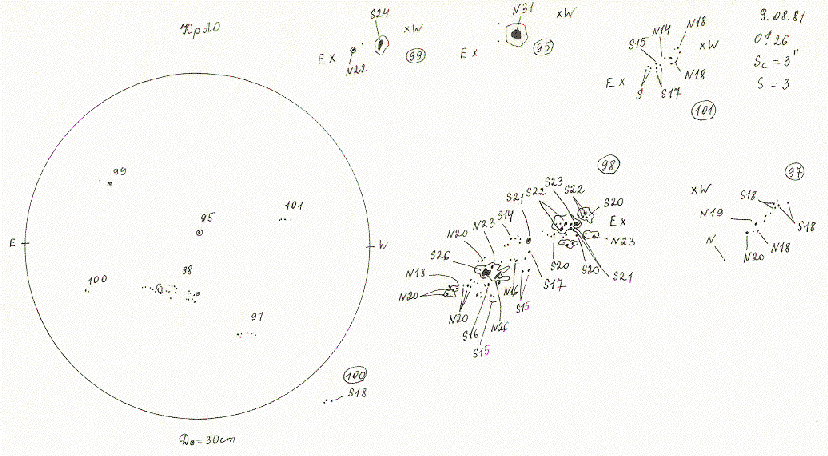 КрАО
S24
N22
E x
x W
99
N31
x W
E x
95
S15
N14
N18
x W
N18
E x
S
S17
101
9.08.81
Sc = 3"
S = 3
99
95
101
E
W
100
98
97
98
S21
S22
S23
S22
S20
E x
N23
S14
N23
N20
S26
N18
N20
N20
S16
S15
N26
N16
S15
S17
S20
S20
S21
97
x W
S18
S18
N19
N
N20
N18
100
S18
D⊙ = 30cm